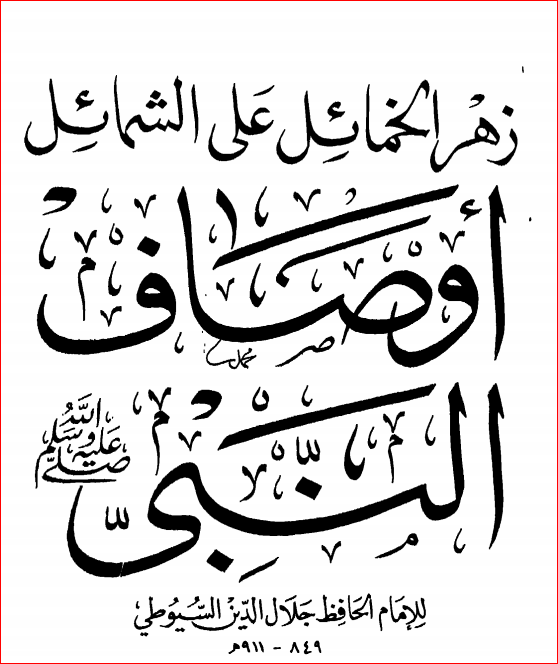 زهر الخمائل على الشمائل
أوصاف
النبي
صلى الله عليه وسلم
للإمام الحافظ جلال الدين السيوطي
٨٤٩ - ٩١١هـ